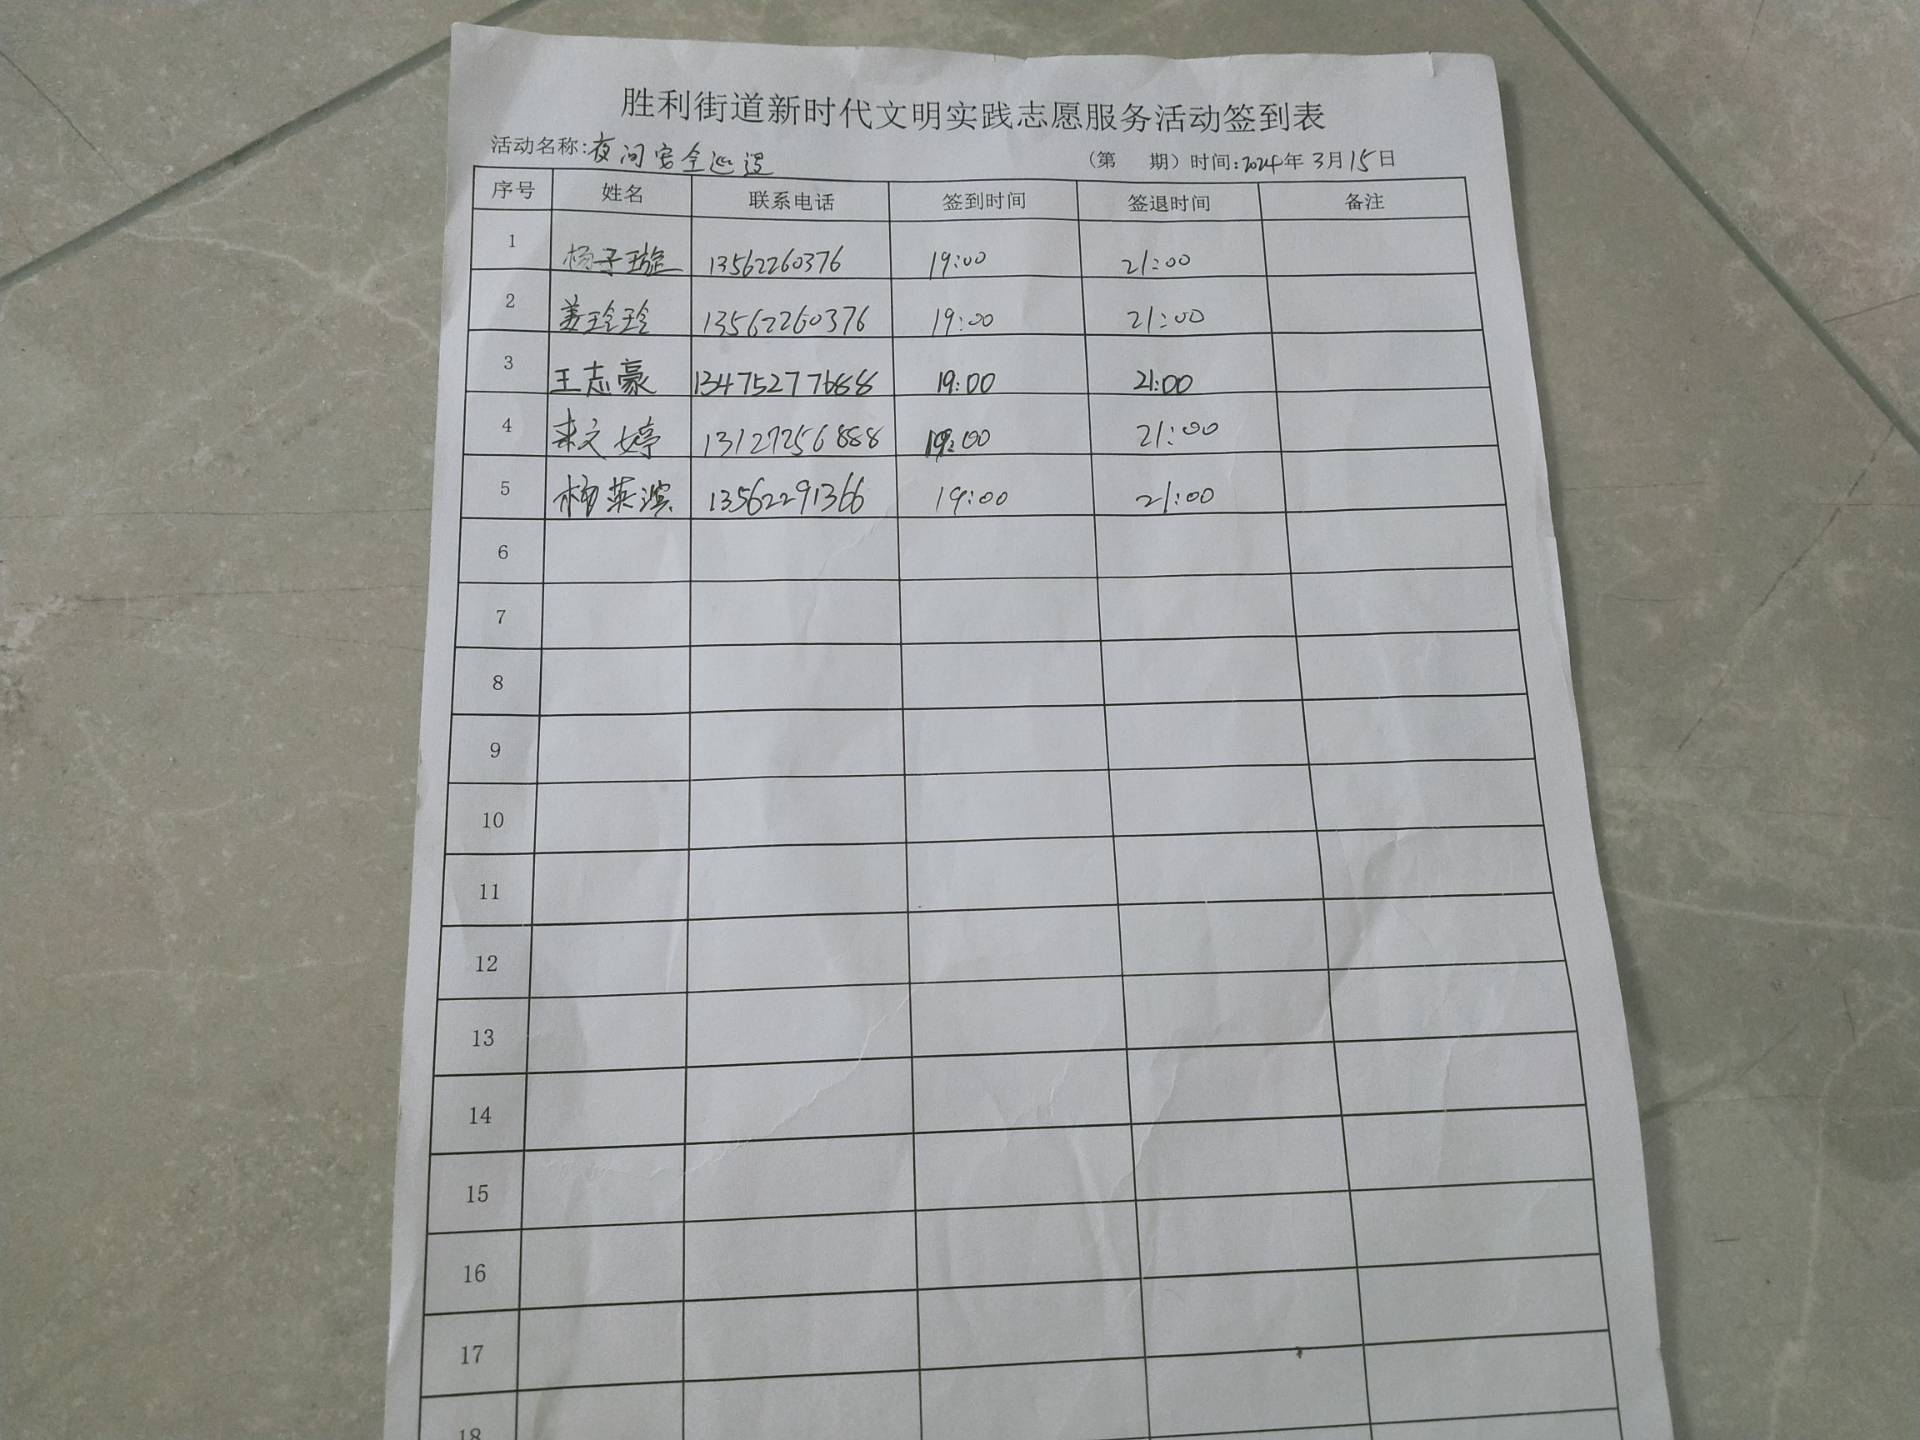 胜利街道新时代文明实践志愿服务活动签到表
活动名称:夜间安全巡逻 （第 期）时间:2024年 3月15日
序号 姓名 联系电话 签到时间 签退时间 备注
1 杨子璇 13562260376 19:00 21:00
2 姜玲玲 13562260376 19:00 21:00
3 王志豪 13475277688 19:00 21:00
4 来文婷 13127256888 19:00 21:00
5 杨英滨 13562291366 19:00 21:00
6
7
8
9
10
11
12
13
14
15
16
17
18